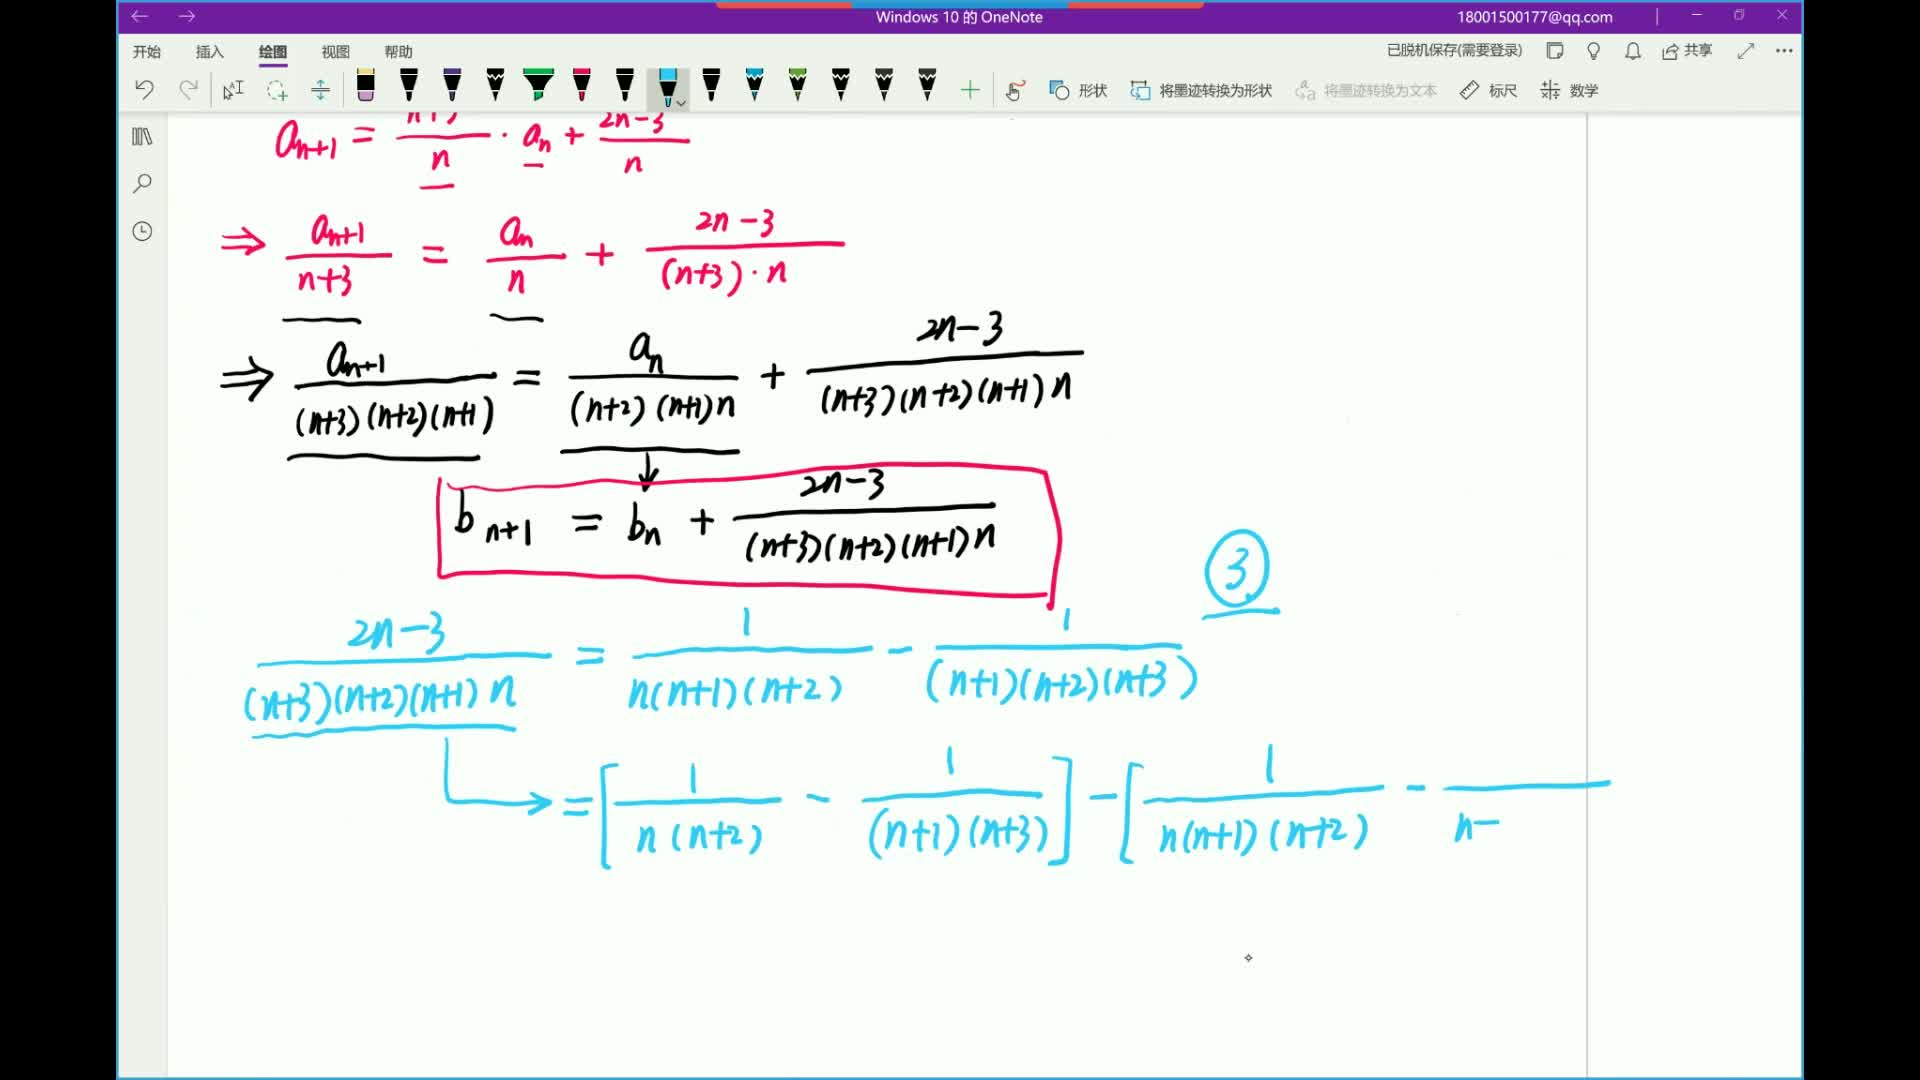 Windows 10 的 OneNote
18001500177@qq.com
开始 插入 绘图 视图 帮助
已脱机保存(需要登录) 共享
形状 将墨迹转换为形状 将墨迹转换为文本 标尺 数学
a_{n+1} = \frac{n+3}{n} · a_n + \frac{2n-3}{n}
⇒ \frac{a_{n+1}}{n+3} = \frac{a_n}{n} + \frac{2n-3}{(n+3)·n}
⇒ \frac{a_{n+1}}{(n+3)(n+2)(n+1)} = \frac{a_n}{(n+2)(n+1)n} + \frac{2n-3}{(n+3)(n+2)(n+1)n}
↓
b_{n+1} = b_n + \frac{2n-3}{(n+3)(n+2)(n+1)n}
③
\frac{2n-3}{(n+3)(n+2)(n+1)n} = \frac{1}{n(n+1)(n+2)} - \frac{1}{(n+1)(n+2)(n+3)}
= [\frac{1}{n(n+2)} - \frac{1}{(n+1)(n+3)}] - [\frac{1}{n(n+1)(n+2)} - \frac{}{n-}